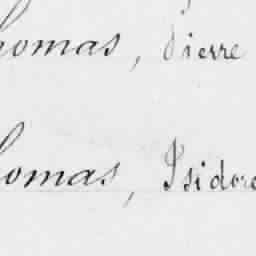 homas, Pierre
homas, Isidore